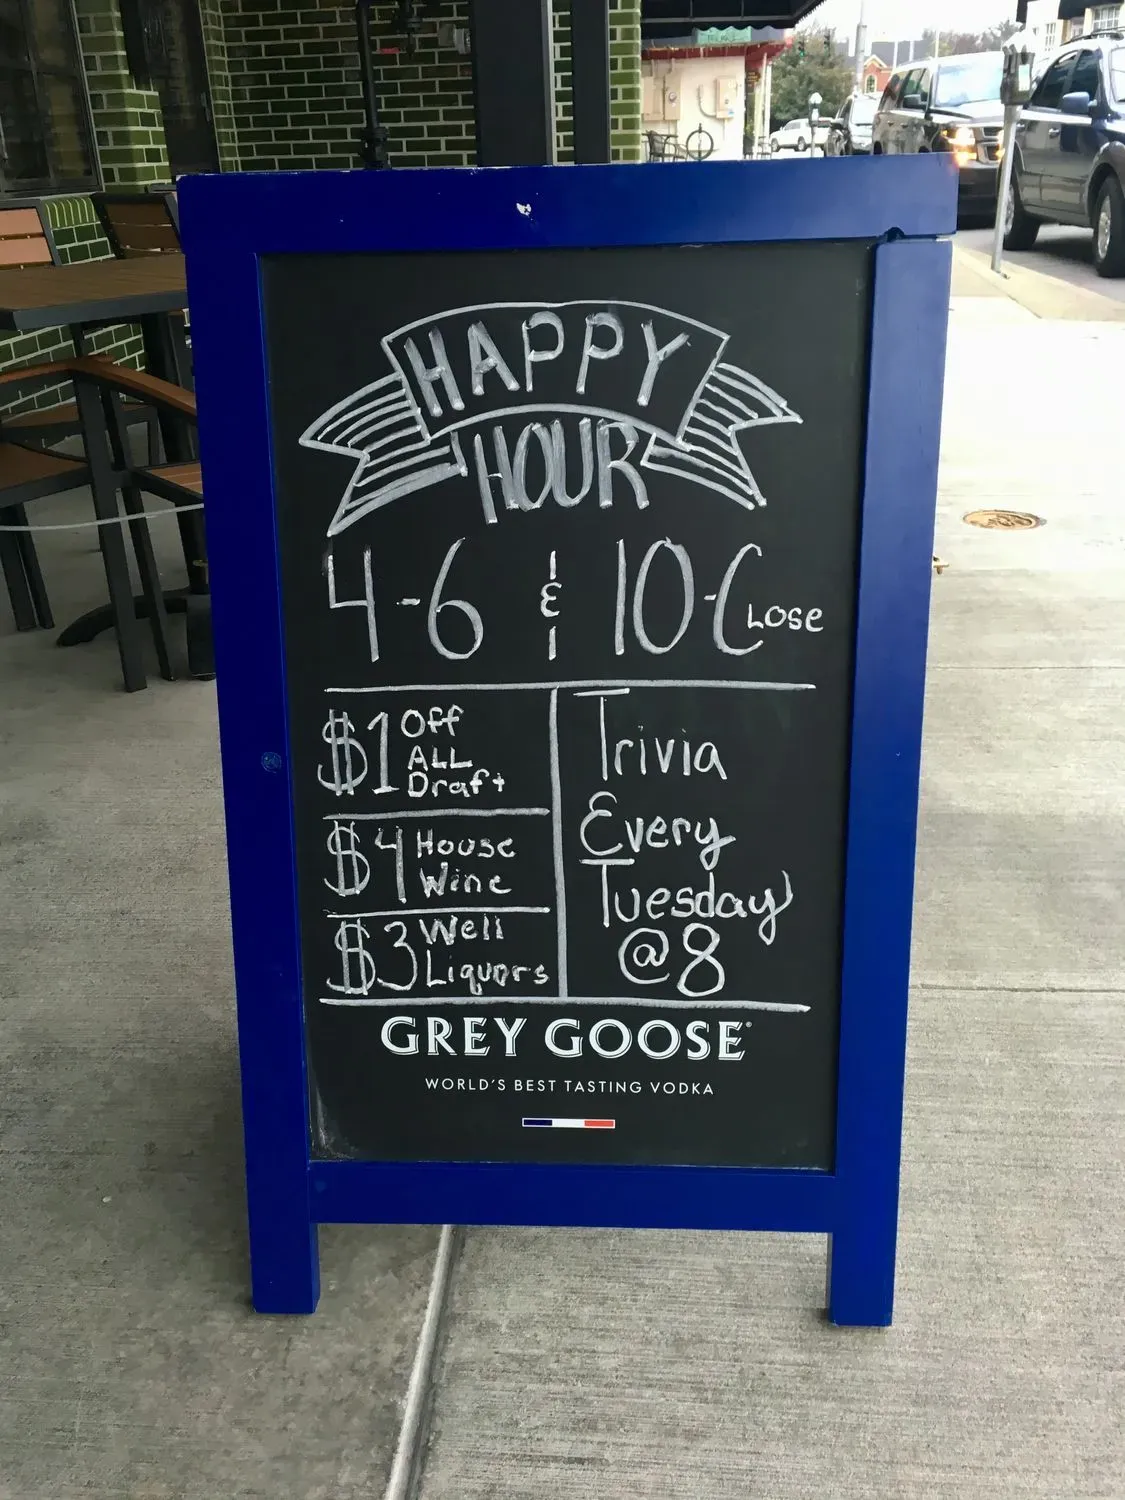 HAPPY
HOUR
4-6 & 10-CLOSE
$1 Off
ALL
Draft
$4 House
Wine
$3 Well
Liquors
Trivia
Every
Tuesday
@8
GREY GOOSE®
WORLD'S BEST TASTING VODKA